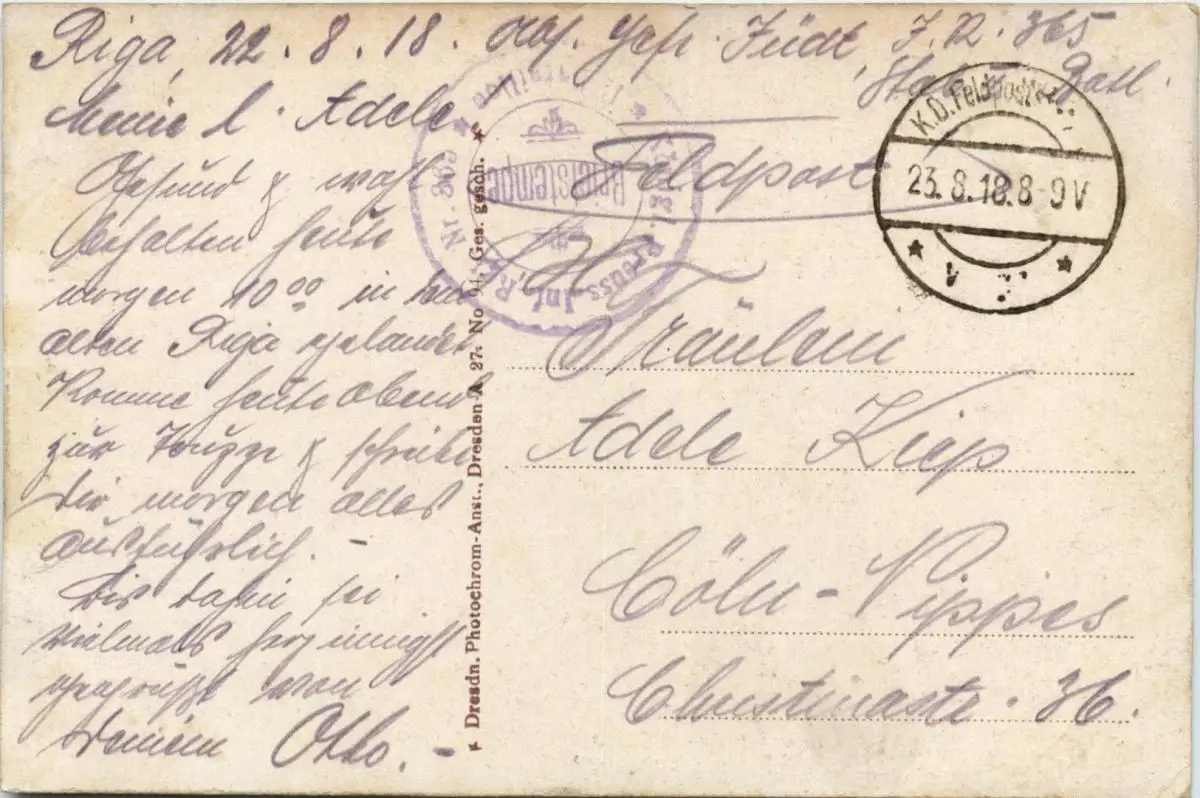 Riga, 22.8.18. Abs. Gefr. Jüdt, J.R. 365
Batl.
Meine l. Adele
Gesund & wohl
behalten heute
morgen 10 00 in dem
alten Riga gelandet
Komme heute Abend
zur Truppe & schreibe
Dir morgen alles
ausführlich. –
Bis dahin sei
vielmals herzinnigst
gegrüßt von
Deinem Otto. –
* Dresdn. Photochrom-Anst., Dresden-A. 27. No. Ges. gesch. *
Nr. 365
Briefstempel
Preuss. Inf. R.
Feldpost
K.D. Feldpost
23.8.18.8-9V
Fräulein
Adele Kiep
Cöln-Nippes
Christinastr. 36.